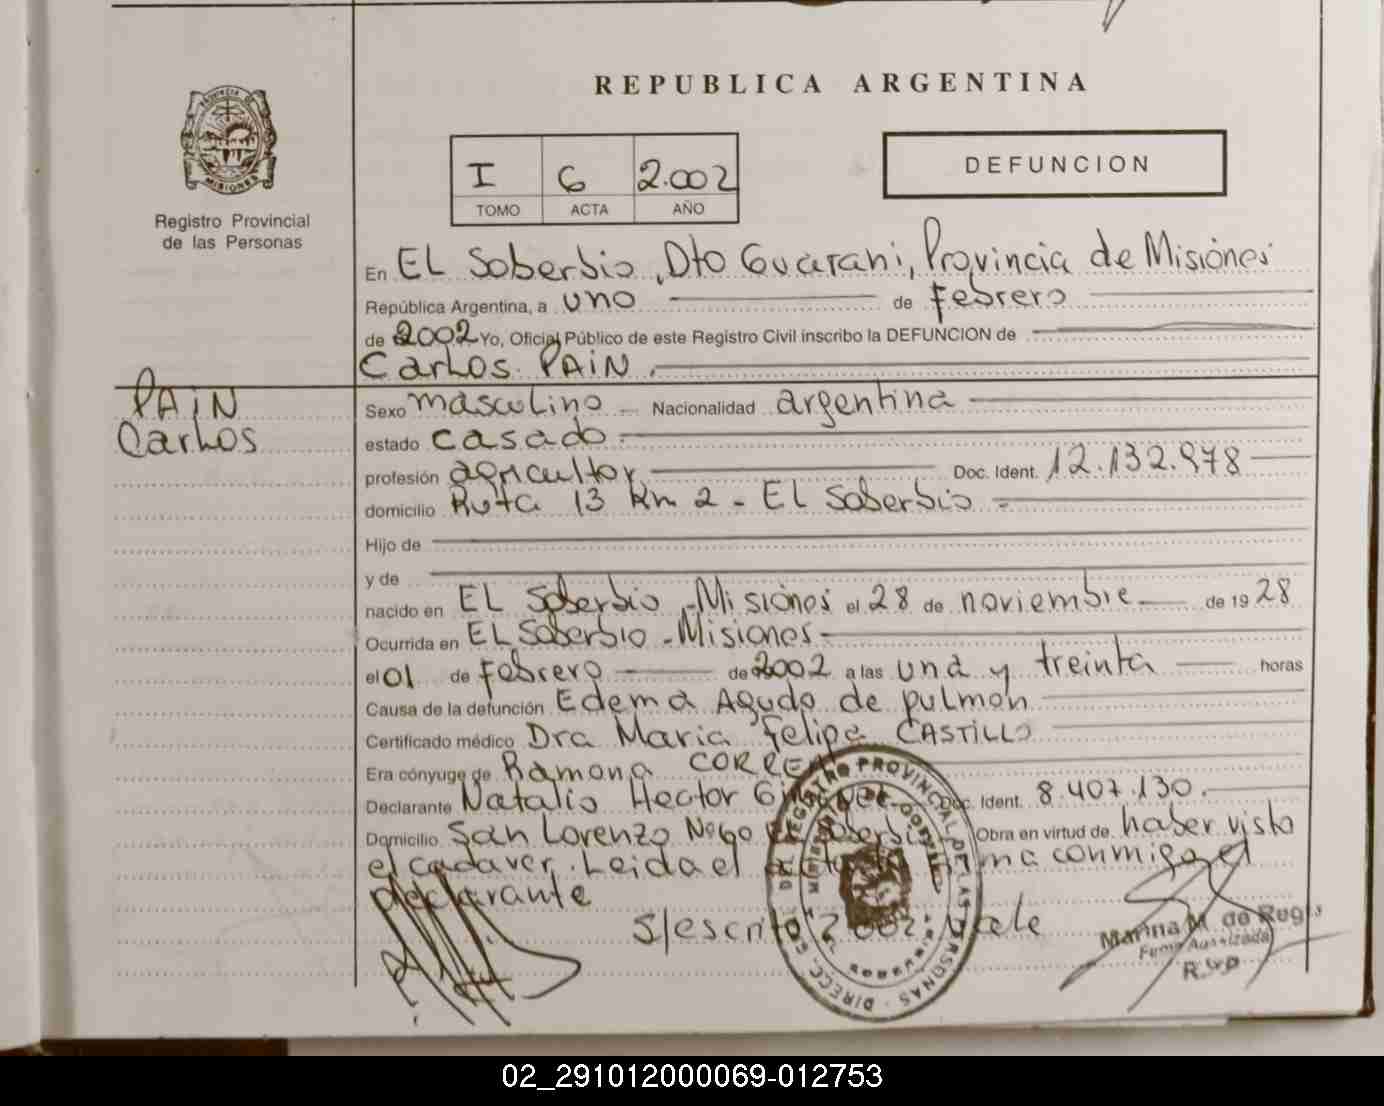 REPUBLICA ARGENTINA
PROVINCIA DE MISIONES
Registro Provincial
de las Personas
I 6 2.002
TOMO ACTA AÑO
DEFUNCION
En EL Soberbio, Dto Guarani, Provincia de Misiones
República Argentina, a uno de Febrero
de 2002 Yo, Oficial Público de este Registro Civil inscribo la DEFUNCION de
Carlos PAIN
PAIN
Carlos
Sexo masculino Nacionalidad argentina
estado casado
profesión agricultor Doc. Ident. 12.132.978
domicilio Ruta 13 Km 2 - EL Soberbio
Hijo de
y de
nacido en EL Soberbio - Misiones el 28 de noviembre de 1928
Ocurrida en EL Soberbio - Misiones
el 01 de Febrero de 2002 a las una y treinta horas
Causa de la defunción Edema Agudo de pulmon
Certificado médico Dra Maria Felipa CASTILLO
Era cónyuge de Ramona CORREA
Declarante Natalio Hector Doc. Ident. 8.407.130.
Domicilio San Lorenzo Nº60 El Soberbio Obra en virtud de haber visto
el cadaver. Leida el acta la firma conmigo el
declarante
S/escrito "2002" Vale
Marina M. de
Firma Autorizada
DIRECC. GRAL. DEL REGISTRO PROVINCIAL DE LAS PERSONAS
MISIONES
02_291012000069-012753